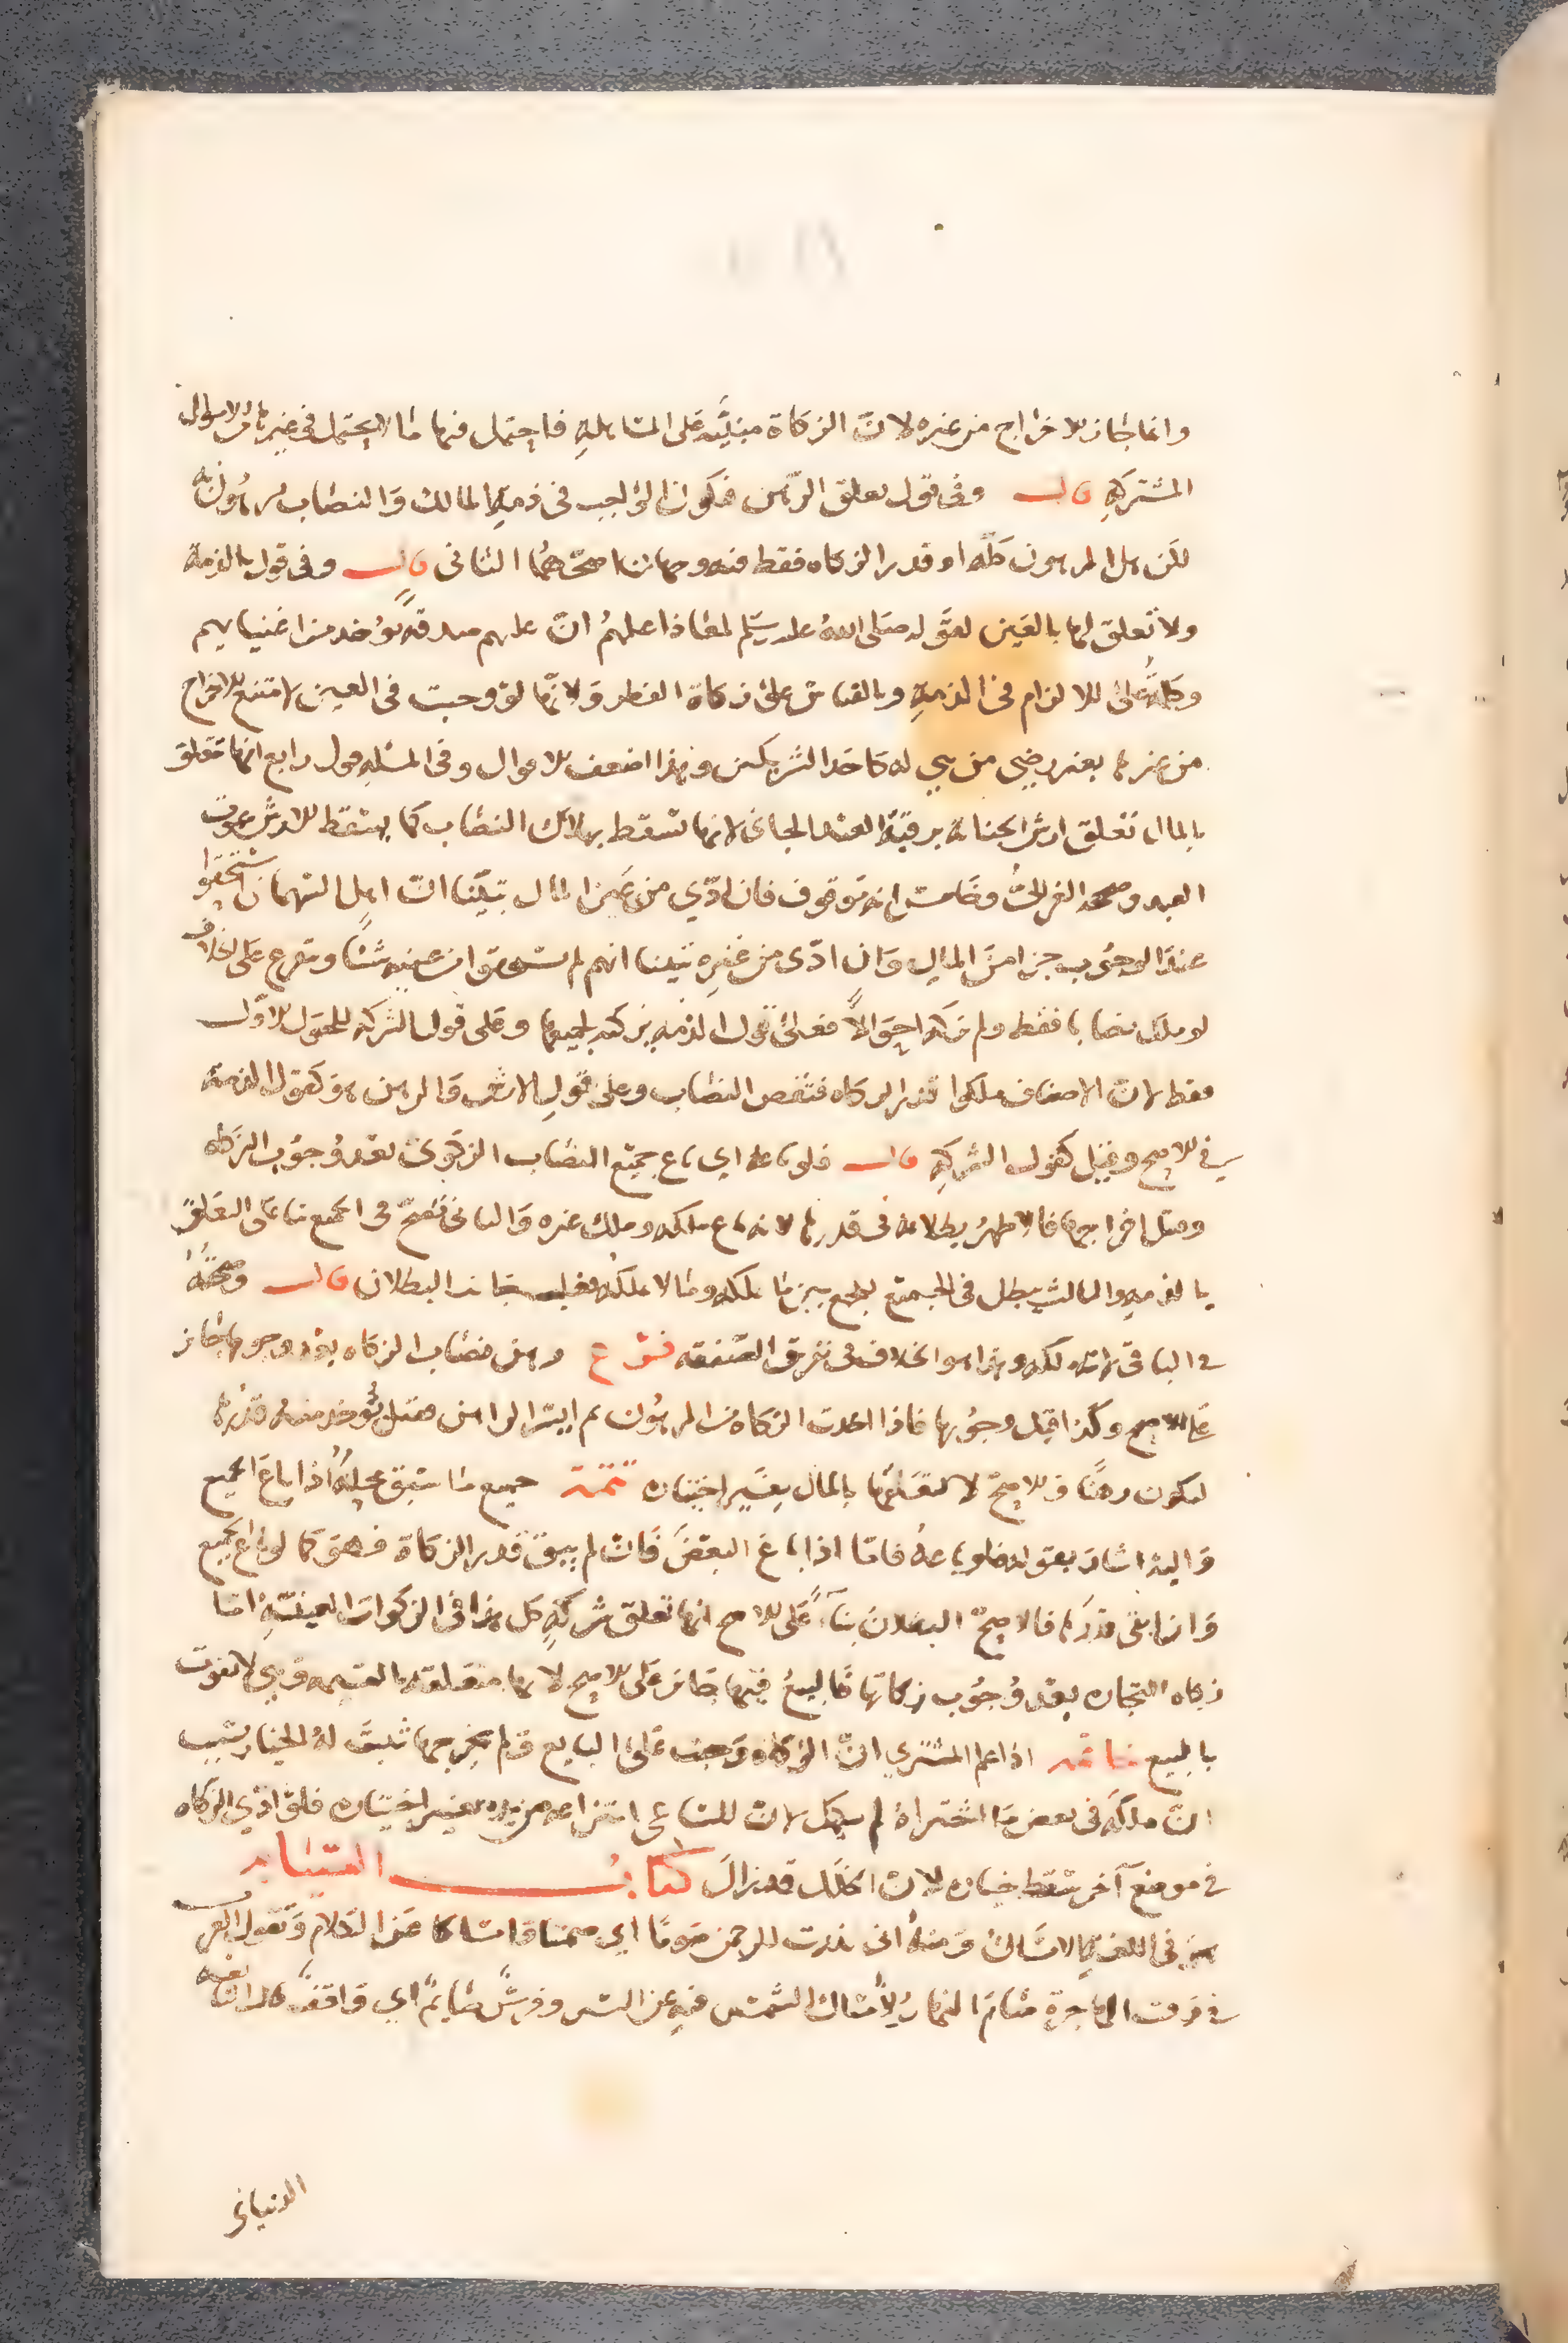 وانما جاز الاخراج من غيره لان الزكاة مبنية على المساهلة فاحتمل فيها ما لا يحتمل في غيرها من الاموال
المشتركة قال وفي قول تعلق الرهن فيكون الواجب في ذمة المالك والنصاب مرهون به
لكن هل المرهون كله او قدر الزكاه فقط فيه وجهان اصحهما الثاني قال وفي قول بالذمة
ولا تعلق لها بالعين لقوله صلى الله عليه وسلم لمعاذ اعلمهم ان عليهم صدقة تؤخذ من اغنيايهم
وكلمة على للالزام في الذمة وبالقياس على زكاة الفطر ولانها لو وجبت في العين لامتنع الاخراج
من غيرها بغير رضي من هي له كاحد الشريكين وهذا اضعف الاقوال وفي المسله قول رابع انها تتعلق
بالمال تعلق ارش الجناية برقبة العبد الجاني لانها تسقط بهلاك النصاب كما يسقط الارش بموت
العبد وصححه الغزالي وخامس انه موقوف فان ادي من عين المال تبينا ان اهل السهمان استحقوا
عند الوجوب جزا من المال وان ادى من غيره تبينا انهم لم يستحقوا من عينه شيًا ويتفرع على الخلاف
لو ملك نصابا فقط ولم يزكه احوالًا فعلى قول الذمه يزكيه لجميعها وعلى قول الشركه للحول الاول
فقط لان الاصناف ملكوا قدر الزكاه فنقص النصاب وعلى قول الارش والرهن هو كقول الذمة
في الاصح وقيل كقول الشركة قال فلو باعه اي باع جميع النصاب الزكوي بعد وجوب الزكاه
وقبل اخراجها فالاظهر بطلانه في قدرها لانه باع ملكه وملك غيره والثاني يصح في الجميع بنا على التعلق
بالذمه والثالث يبطل في الجميع لجمع بين ما يملكه وما لا يملكه فغلب جانب البطلان قال وصحته
في الباقي لانه ملكه وهذا هو الخلاف في تفريق الصفقه فرع رهن نصاب الزكاه بعد وجوبها جائز
على الاصح وكذا قبل وجوبها فاذا اخذت الزكاة من المرهون ثم ايسر الراهن فقيل يؤخذ منه قدرها
ليكون رهنًا والاصح لا لتعلقها بالمال بغير اختياره تتمة جميع ما سبق محله اذا باع الجميع
واليه اشار بقوله فلو باعه فاما اذا باع البعض فان لم يبق قدر الزكاة فهو كما لو باع الجميع
وان ابقى قدرها فالاصح البطلان بناءً على الاصح انها تعلق شركة كل هذا في الزكوات العينية اما
زكاه التجاره بعد وجوب زكاتها فالبيع فيها جائز على الاصح لانها متعلقه بالقيمه وهي لا تفوت
بالبيع خاتمه اذا علم المشتري ان الزكاة وجبت على البايع ولم يخرجها ثبت له الخيار بسبب
ان ملكه في بعض ما اشتراه لم يكمل لان للساعي انتزاعه من يده بغير اختياره فلو ادي الزكاه
في موضع آخر سقط خياره لان الخلل قد زال كتاب الصيام
هو في اللغة الامساك ومنه اني نذرت للرحمن صومًا اي صمتا وامساكا عن الكلام وتقول العرب
في وقت الهاجرة صام النهار لامساك الشمس فيه عن السير وفرسٌ صايمٌ اي واقفٌ قال النابغه
الذبياني